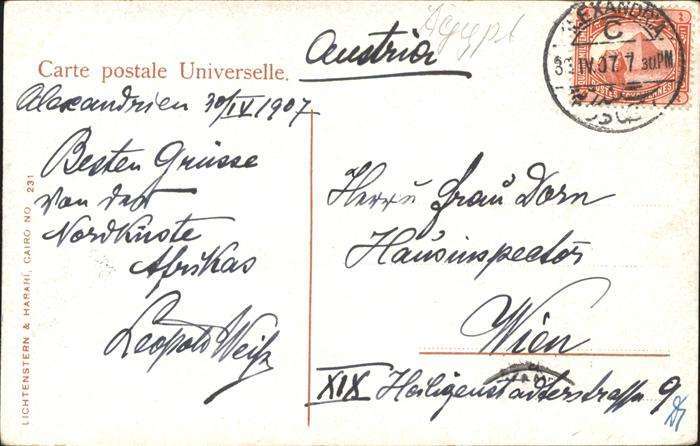 Ägypt
Austria
Carte postale Universelle.
ALEXANDRIA
C
30 IV 07 7 30 PM
Alexandrien 30/IV 1907
Besten Grüsse
von der
Nordküste
Afrikas
Leopold Weiß
Herr u Frau Dorn
Hausinspector
Wien
XIX Heiligenstädterstrasse 9
LICHTENSTERN & HARARI, CAIRO NO 231